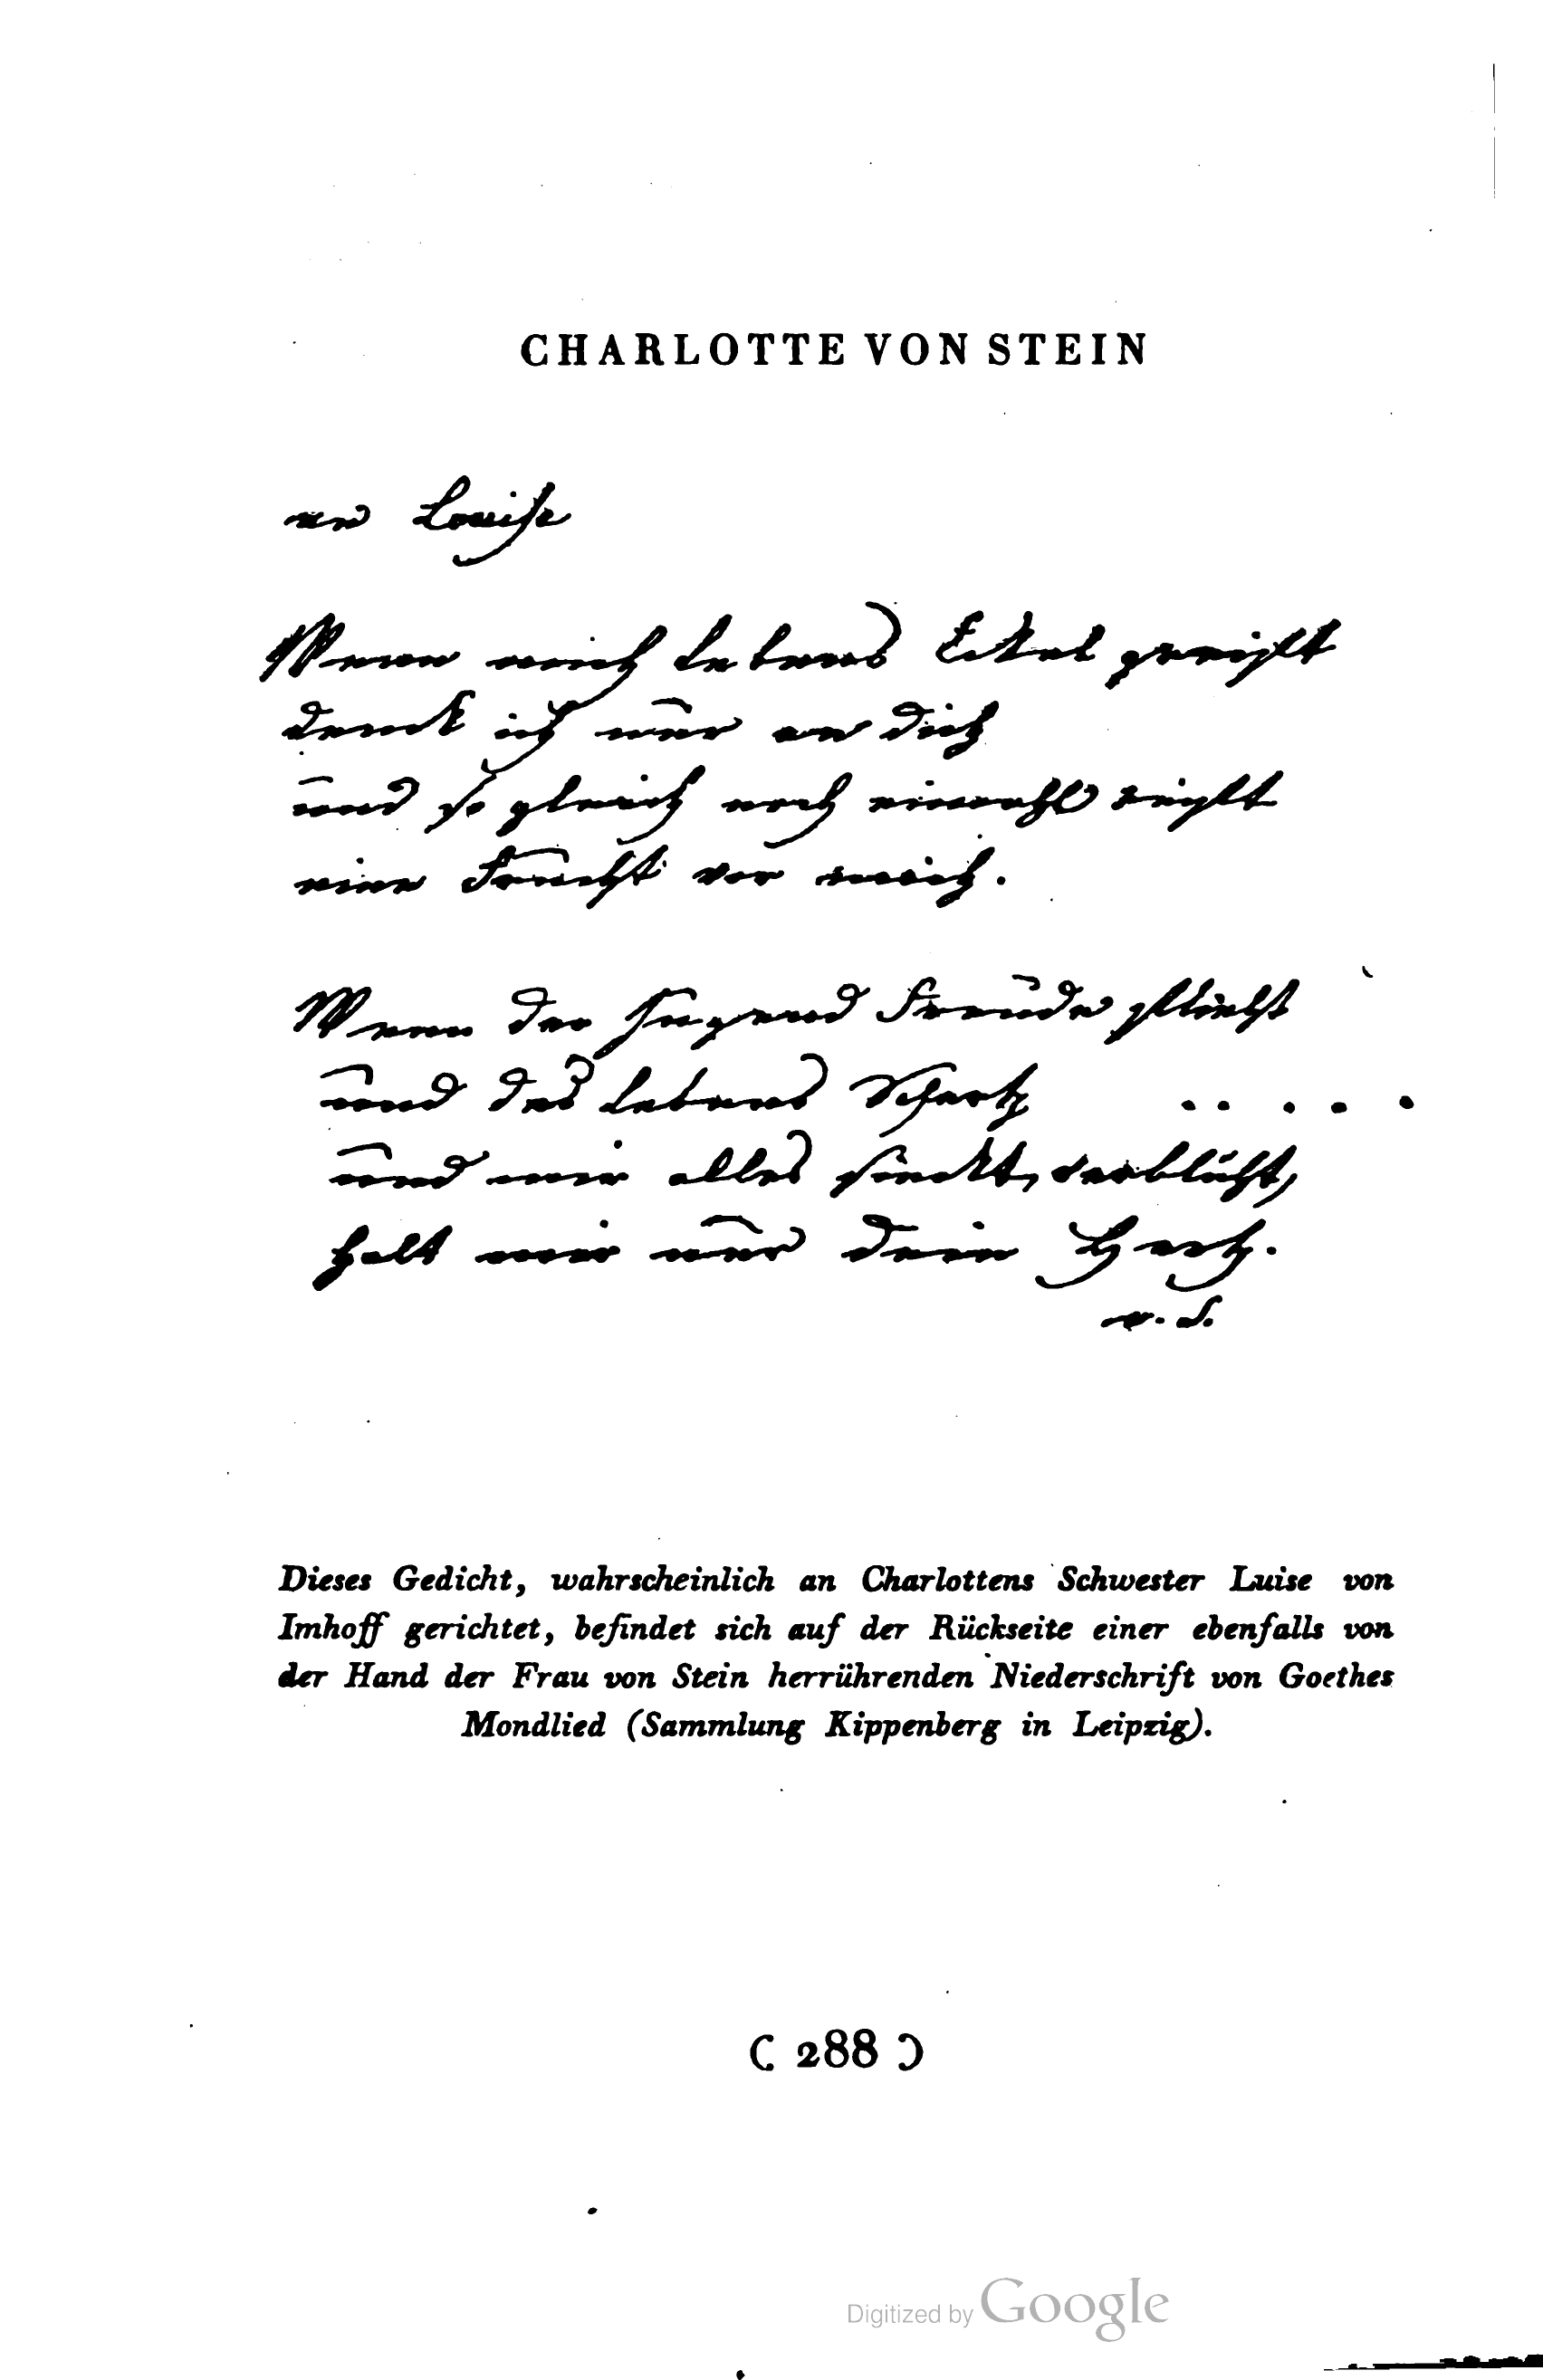 CHARLOTTE VON STEIN
an Louise
Wenn mich lebens Eckel greift
denck ich nur an dich
und so gleich noch einmahl reift
eine Frucht vor mich.
Wenn der Jugend Freude flieht
und des lebens Schertz . . . . .
und mir alles sinckt, verblüht,
halt mir nur dein Hertz.
v. S.
Dieses Gedicht, wahrscheinlich an Charlottens Schwester Luise von
Imhoff gerichtet, befindet sich auf der Rückseite einer ebenfalls von
der Hand der Frau von Stein herrührenden Niederschrift von Goethes
Mondlied (Sammlung Kippenberg in Leipzig).
( 288 )
Digitized by Google